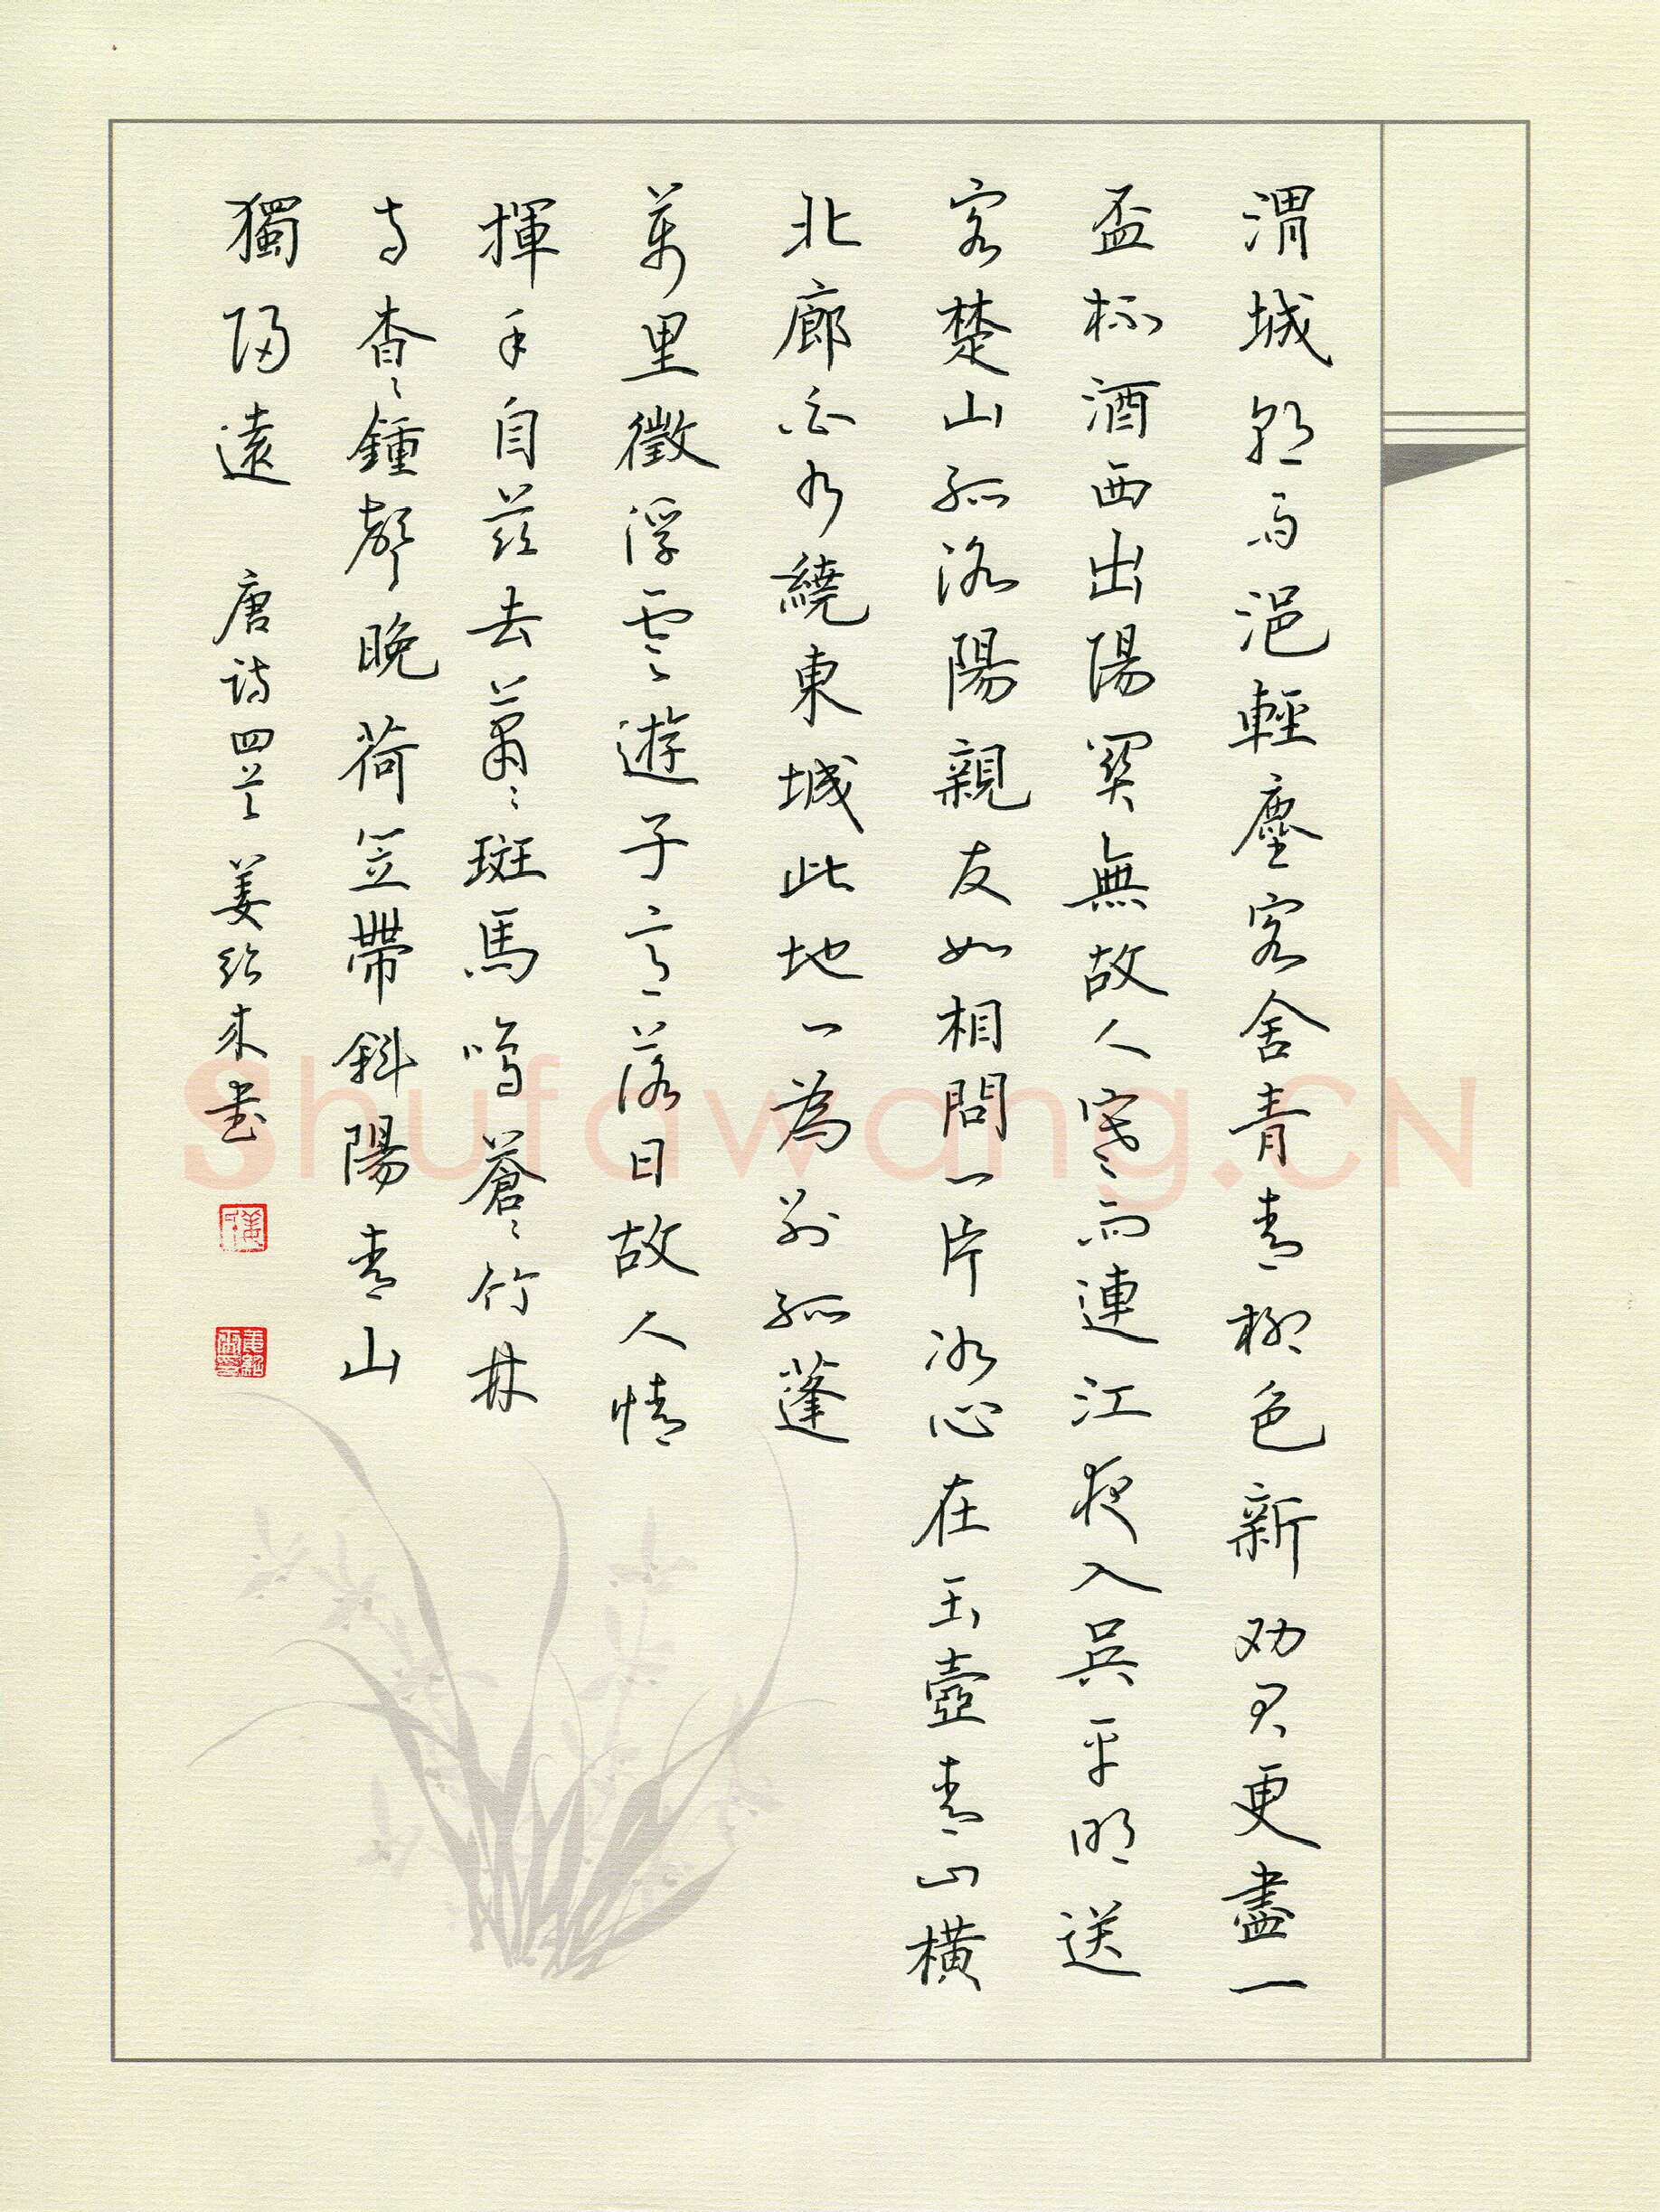 渭城朝雨浥輕塵客舍青青柳色新劝君更盡一
盃杯酒西出陽關無故人寒雨連江夜入吳平明送
客楚山孤洛陽親友如相問一片冰心在玉壺青山橫
北廊白水繞東城此地一為别孤蓬
萬里徵浮雲遊子意落日故人情
揮手自茲去蕭々斑馬鳴蒼々竹林
寺杳々鍾聲晚荷笠帶斜陽青山
獨歸遠 唐詩四首 姜紹来书
Shufawang.CN